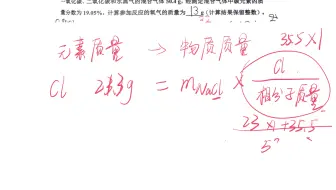 一氧化碳、二氧化碳和水蒸气的混合气体 50.4 g，物测定混合气体中碳元素的质
量分数为 19.05%，计算参加反应的氧气的质量为 13 g（计算结果保留整数）。
元素质量 → 物质质量 35.5×1
Cl 21.3g = mNaCl × Cl / 相对分子质量
23×1+35.5